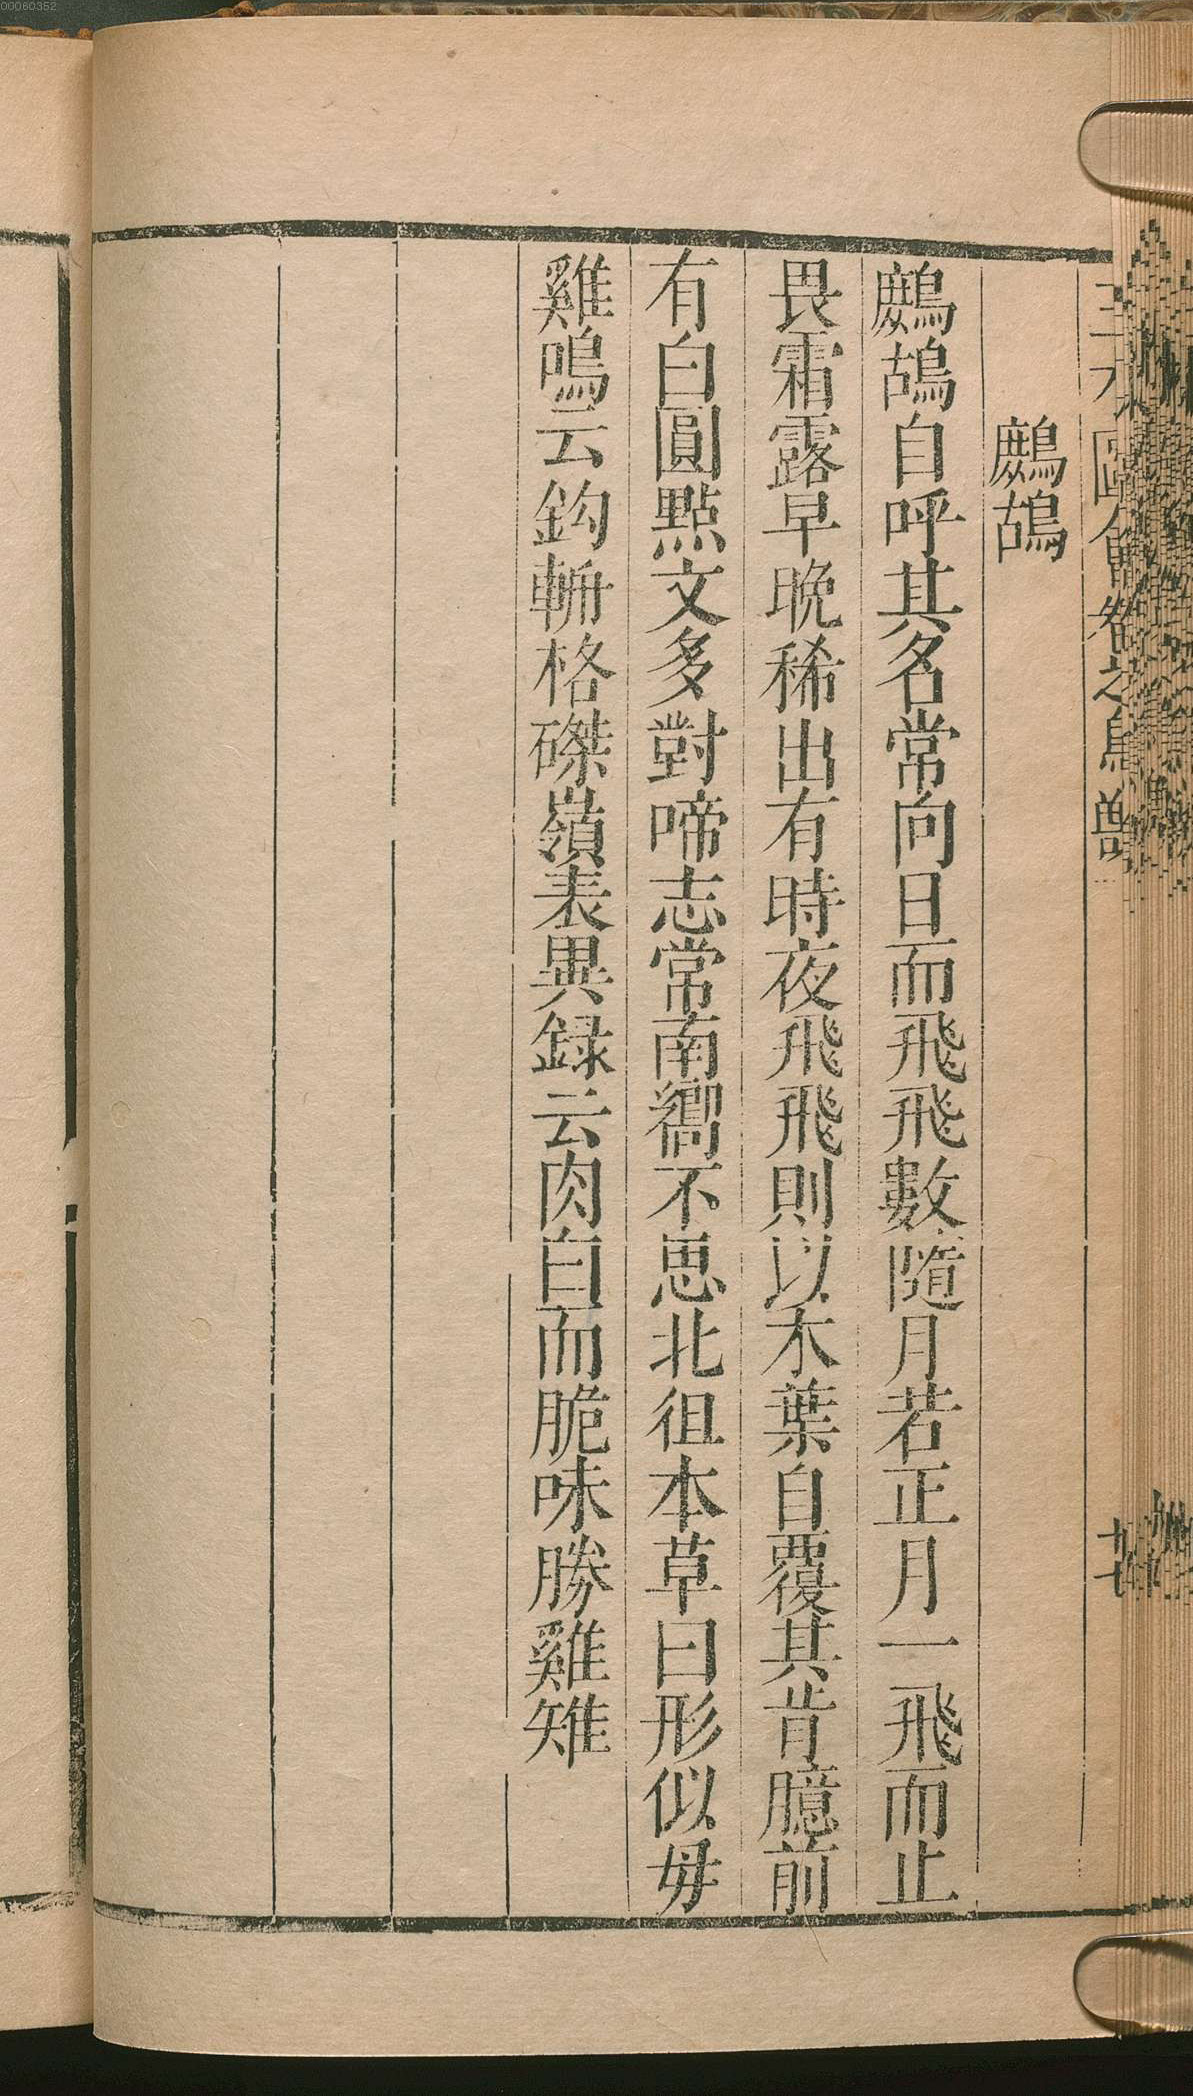 00060352
鷓鴣
鷓鴣自呼其名常向日而飛飛數隨月若正月一飛而止
畏霜露早晚稀出有時夜飛飛則以木葉自覆其背臆前
有白圓點文多對啼志常南嚮不思北徂本草曰形似毋
雞鳴云鈎輈格磔嶺表異録云肉白而脆味勝雞雉